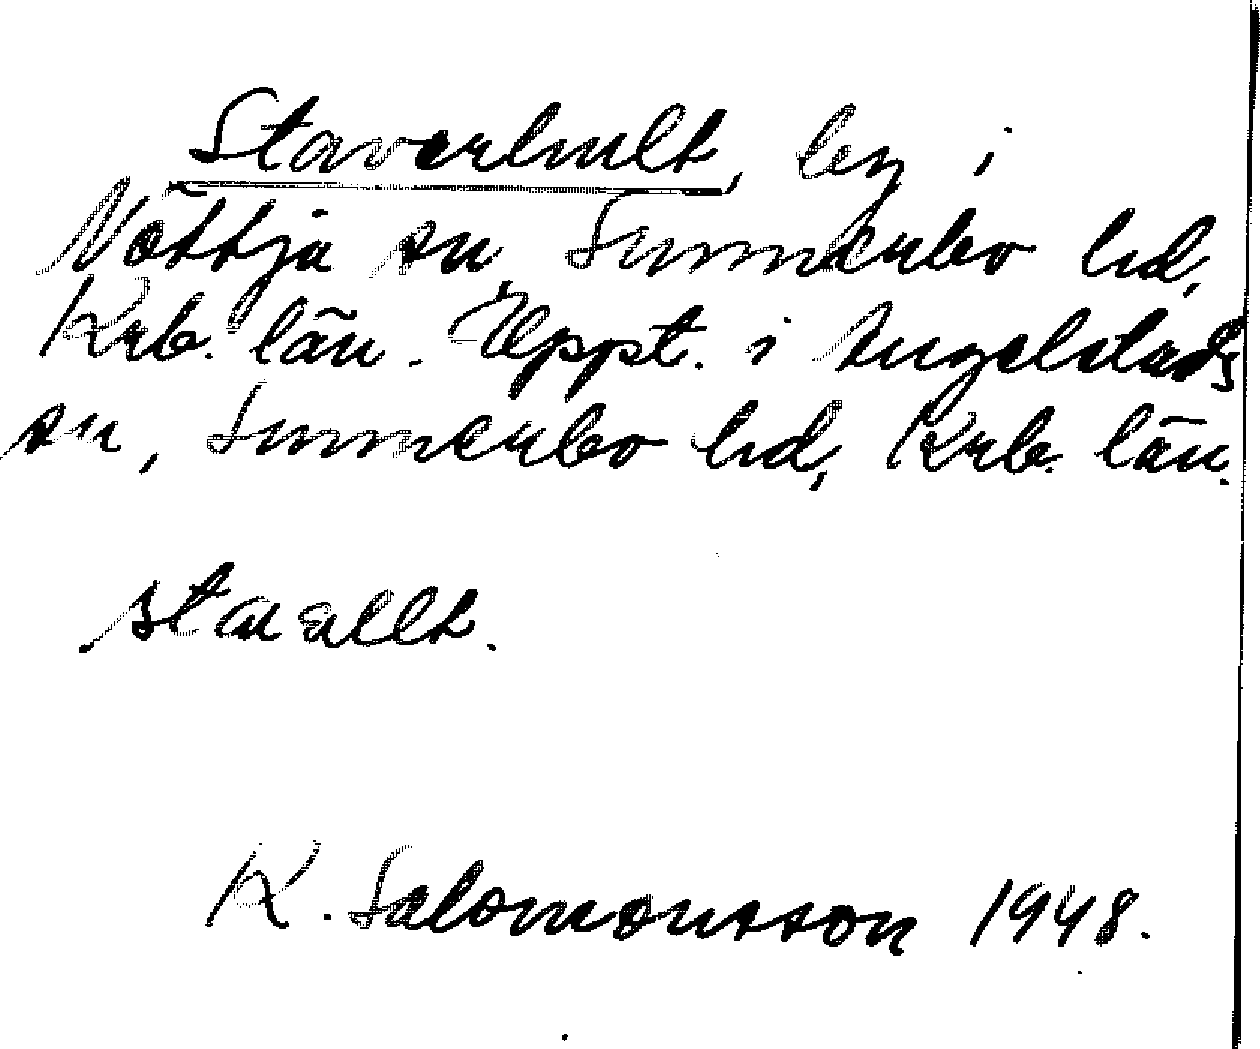 Staverhult, by i
Nöttja sn, Sunnerbo hd,
Krb. län. Uppt. i Angelstads
sn, Sunnerbo hd, Krb. län.
K. Salomonsson 1948.